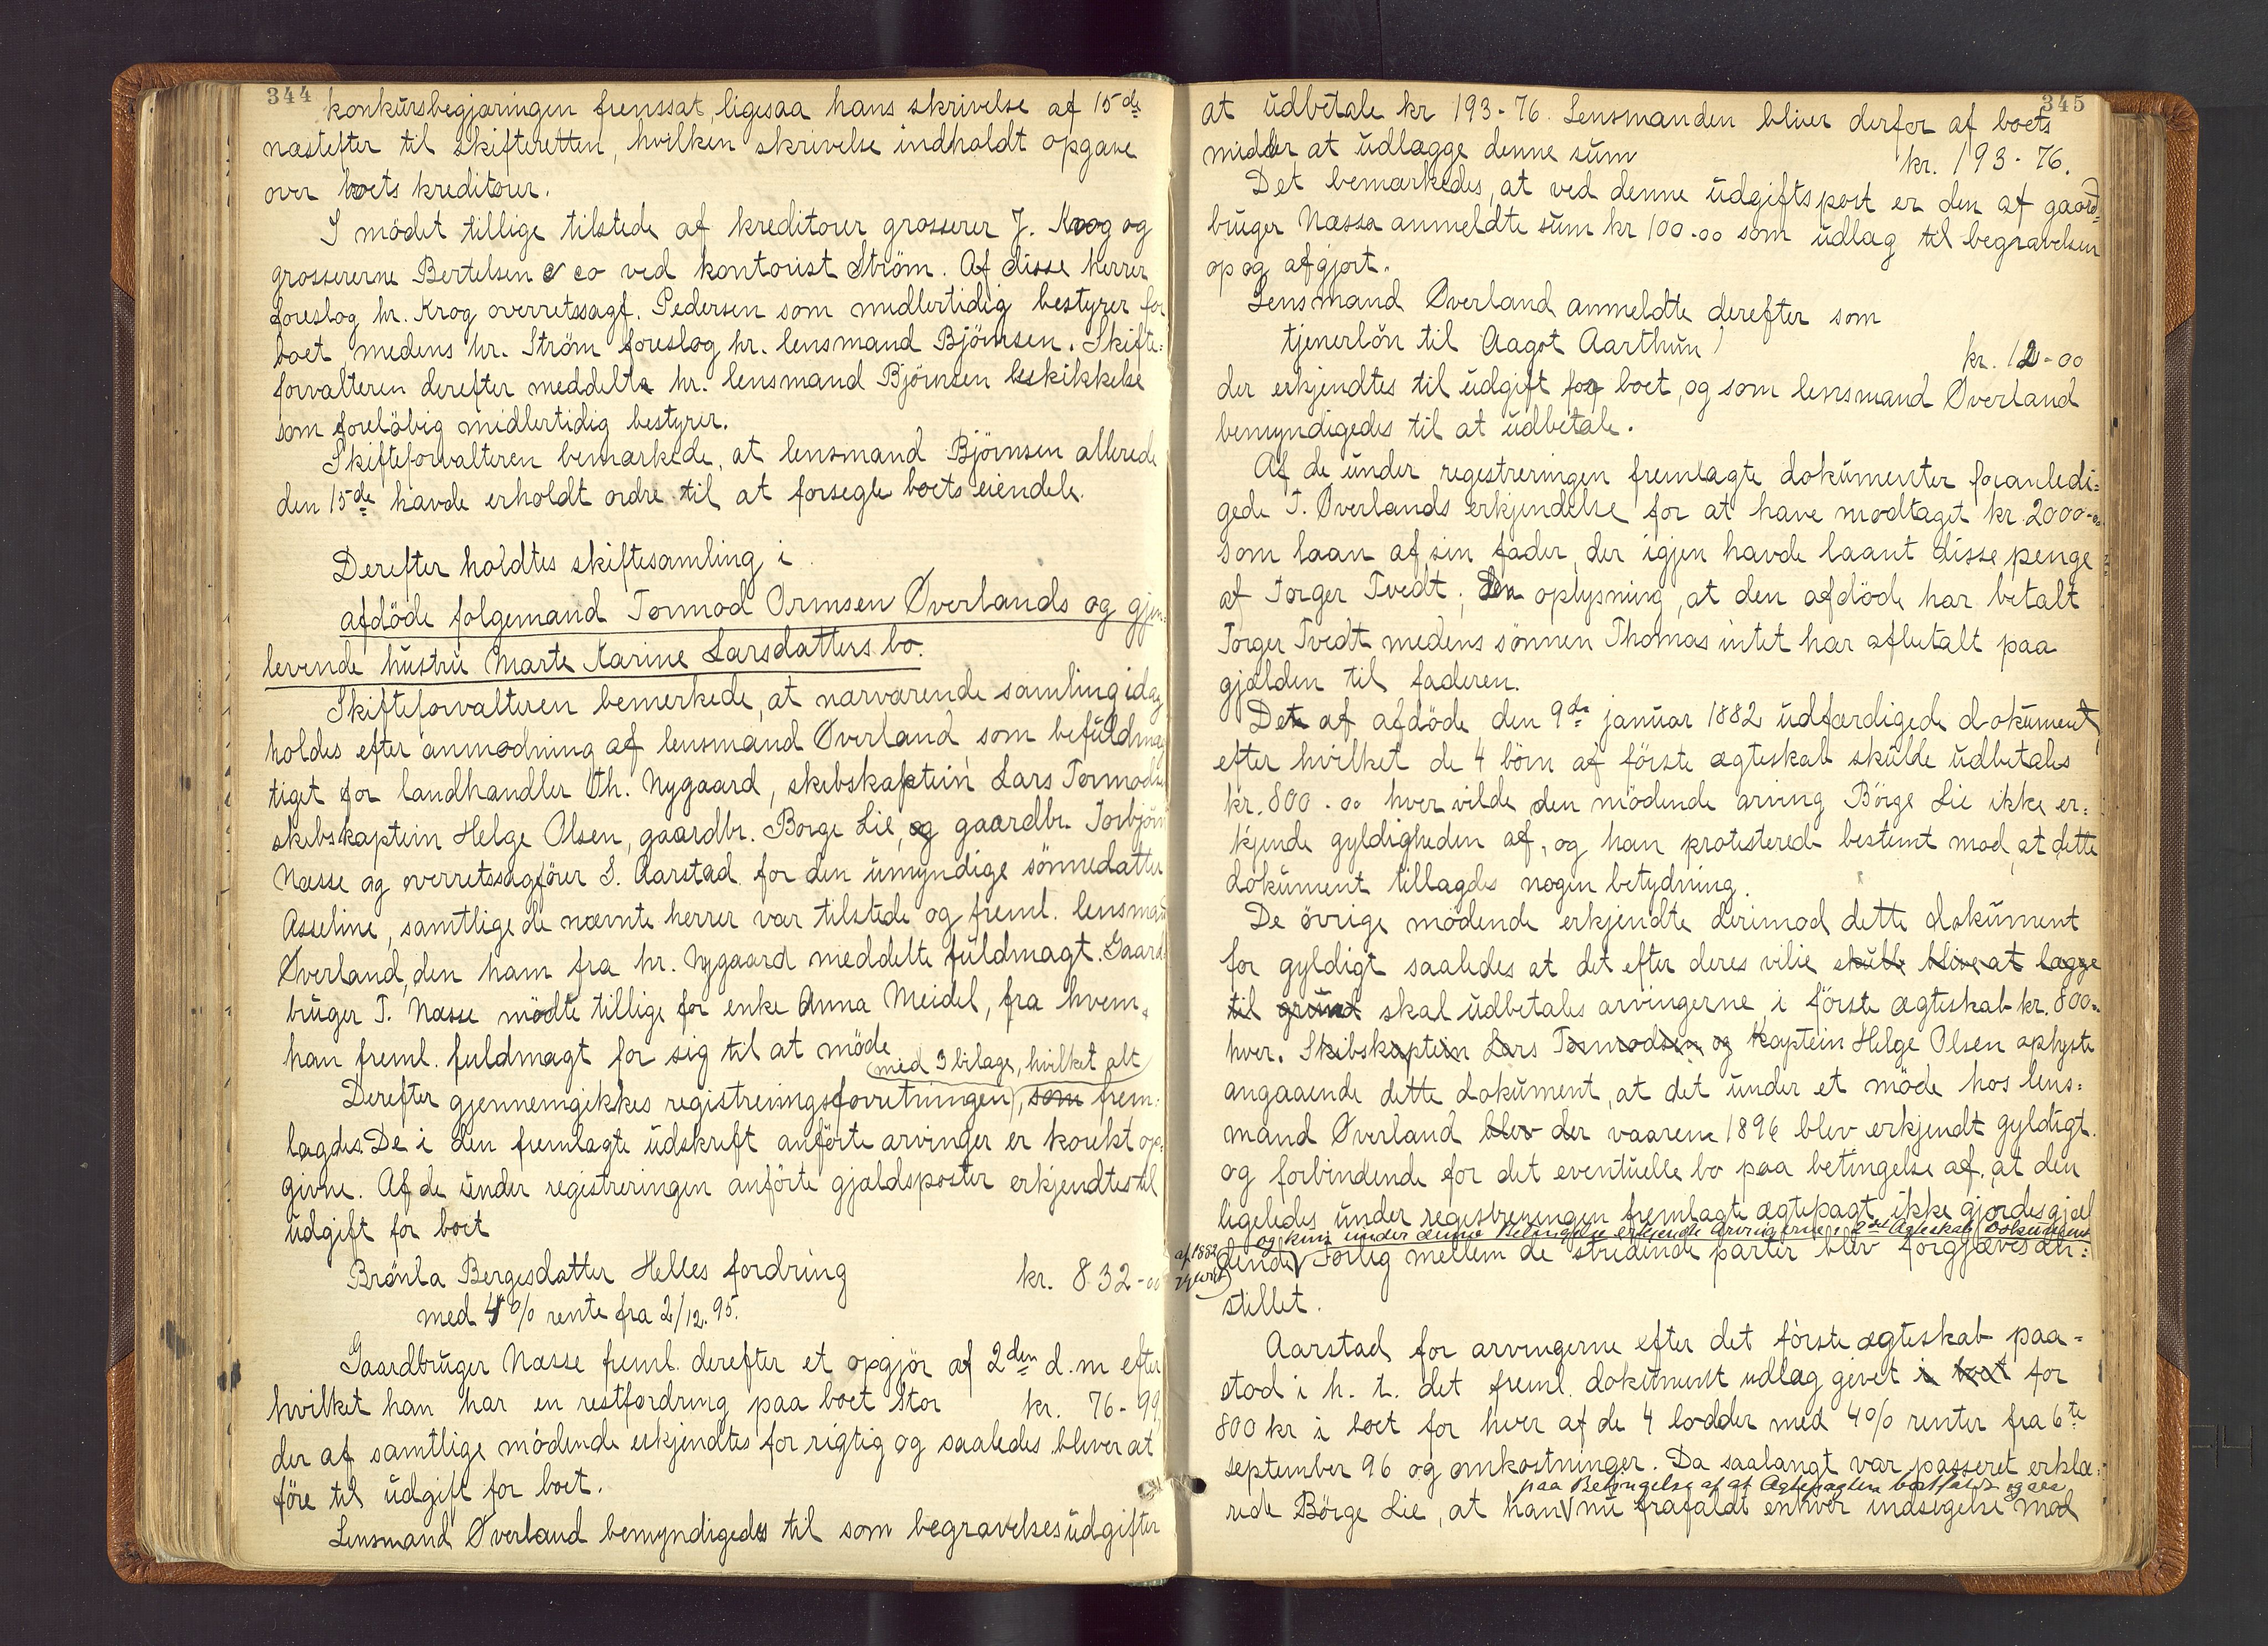 344
konkursbegjæringen fremsat, ligesaa hans skrivelse af 15de
næstefter til skifteretten, hvilken skrivelse indholdt opgave
over boets kreditorer.
I mödet tillige tilstede af kreditorer grosserer J. Krog og
grossererne Bertelsen & co ved kontorist Ström. Af disse herrer
foreslog hr. Krog overretssagf. Pedersen som midlertidig bestyrer for
boet medens hr. Ström foreslog hr. lensmand Björnsen. Skifte-
forvalteren derefter meddelte hr. lensmand Björnsen beskikkelse
som foreløbig midlertidig bestyrer.
Skifteforvalteren bemærkede, at lensmand Björnsen allerede
den 15de havde erholdt ordre til at forsegle boets eiendele.
Derefter holdtes skiftesamling i
afdöde folgemand Tormod Ormsen Øverlands og gjen-
levende hustru Marte Karine Larsdatters bo.
Skifteforvalteren bemerkede, at nærværende samling idag
holdes efter anmodning af lensmand Øverland som befuldmæg
tiget for landhandler Th. Nygaard, skibskaptein Lars Tormodsen
skibskaptein Helge Olsen, gaardbr. Borge Lie, og gaardbr. Torbjörn
Næsse og overretssagförer S. Aarstad for den umyndige sönnedatter
Asseline, samtlige de nævnte herrer var tilstede og freml. lensmand
Øverland, den ham fra hr. Nygaard meddelte fuldmagt. Gaard-
bruger T. Næsse mødte tillige for enke Anna Meidel, fra hvem
han freml. fuldmagt for sig til at möde
(med 3 bilage, hvilket alt
Derefter gjennemgikkes registreringsforretningen), som frem-
lagdes. De i den fremlagte udskrift anförte arvinger er korekt op-
givne. Af de under registreringen anförte gjældsposter erkjendtes til
udgift for boet
Brönla Bergesdatter Helles fordring kr. 832-00
med 4% rente fra 2/12. 95.
Gaardbruger Næsse freml. derefter et opgjör af 2den d.m efter
hvilket han har en restfordring paa boet stor kr. 76-99
der af samtlige mödende erkjendtes for rigtig og saaledes bliver at
före til udgift for boet.
Lensmand Øverland bemyndigedes til som begravelsesudgifter
345
at udbetale kr 193-76. Lensmanden bliver derfor af boets
midler at udlægge denne sum kr. 193-76.
Det bemærkedes, at ved denne udgiftspost er den af gaard-
bruger Næssa anmeldte sum kr 100-00 som udlæg til begravelsen
op og afgjort.
Lensmand Øverland anmeldte derefter som
tjenerlön til Aagot Aarthun kr. 12-00
der erkjendtes til udgift for boet, og som lensmand Øverland
bemyndigedes til at udbetale.
Af de under registreringen fremlagte dokumenter foranledi-
gede T. Øverlands erkjendelse for at have modtaget kr. 2000-00
som laan af sin fader, der igjen havde laant disse penge
af Torger Tvedt, den oplysning, at den afdöde har betalt
Torger Tvedt medens sönnen Thomas intet har afbetalt paa
gjælden til faderen.
Det af afdöde den 9de januar 1882 udfærdigede dokument
efter hvilket de 4 börn af förste ægteskab skulde udbetales
kr. 800.00 hver vilde den mödende arving Börge Lie ikke er-
kjende gyldigheden af, og han protesterede bestemt mod at dette
dokument tillagdes nogen betydning.
De övrige mödende erkjendte derimod dette dokument
for gyldigt saaledes at det efter deres vilie skulle blive at lægge
til grund skal udbetales arvingerne i förste ægteskab kr. 800-
hver. Skibskaptein Lars Tormodsen og Kaptein Helge Olsen oplyste
angaaende dette dokument, at det under et möde hos lens-
mand Øverland blev der vaaren 1896 blev erkjendt gyldigt
og forbindende for det eventuelle bo paa betingelse af, at den
ligeledes under registreringen fremlagte ægtepagt ikke gjordes gjæl
og kun under denne Betingelse erkjende Arvingerne i 2det Ægteskab Dokument
af 1882
dende Forlig mellem de stridende parter blev forgjæves an-
stillet.
Aarstad for arvingerne efter det förste ægteskab paa-
stod i h. t. det freml. dokument udlæg givet i boet for
800 kr i boet for hver af de 4 lodder med 4% renter fra 6te
september 96 og omkostninger. Da saalangt var passeret erklæ-
paa Betingelse af at Ægtepagten bortfaldt
rede Börge Lie, at han nu frafaldt enhver indsigelse mod